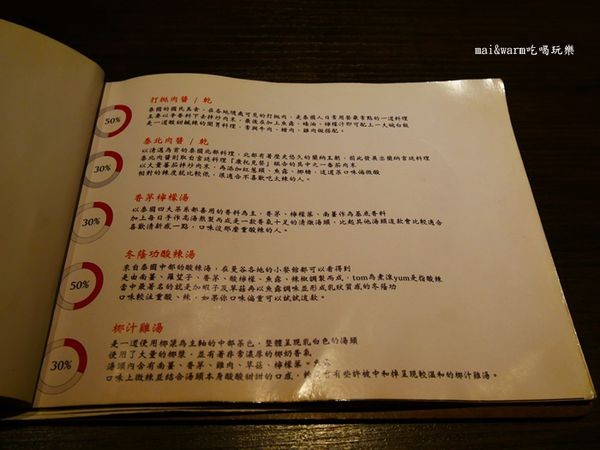 mai&warm吃喝玩樂
打拋肉醬 / 乾
50%
泰國的國民美食，在各地隨處可見的打拋肉，是泰國人日常用餐最常點的一道料理
主要以辛香料下去拌炒肉末，最後在加上魚露、蠔油、檸檬汁即可配上一大碗白飯
是一道酸甜鹹辣的開胃料理，常與牛肉、豬肉、雞肉做搭配。
泰北肉醬 / 乾
30%
以清邁為首的泰國北部料理，北部有著歷史悠久的蘭納王朝，因此發展出蘭納宮廷料理
泰北肉醬則取自宮廷料理「康托克餐」組合的其中之一番茄肉末
以大量蕃茄拌炒肉末，再添加紅蔥頭、魚露、椰糖，這道菜口味偏微酸
相對的辣度就比較低，很適合不喜歡吃太辣的人。
香茅檸檬湯
30%
以泰國四大菜系都善用的香料為主，香茅、檸檬葉、南薑作為基底香料
加上每日手作高湯熬製而成是一款香氣十足的清燉湯頭，比起其他湯頭這款會比較適合
喜歡清新感一點，口味沒那麼重酸辣的人。
冬蔭功酸辣湯
50%
來自泰國中部的酸辣湯，在曼谷各地的小餐館都可以看得到
是由南薑、羅望子、香茅、酸檸檬、魚露、辣椒調製而成，tom為煮滾yum是指酸辣
當中最著名的就是加蝦子及草菇再以魚露調味並形成乳狀質感的冬蔭功
口味較注重酸、辣，如果你口味偏重可以試試這款。
椰汁雞湯
30%
是一道使用椰漿為主軸的中部菜色，整體呈現乳白色的湯頭
使用了大量的椰漿，並有著非常濃厚的椰奶香氣
湯頭內含有南薑、香茅、雞肉、草菇、檸檬葉。
口味上微辣並結合湯頭本身酸酸甜甜的口感，有些許被中和掉呈現較溫和的椰汁雞湯。